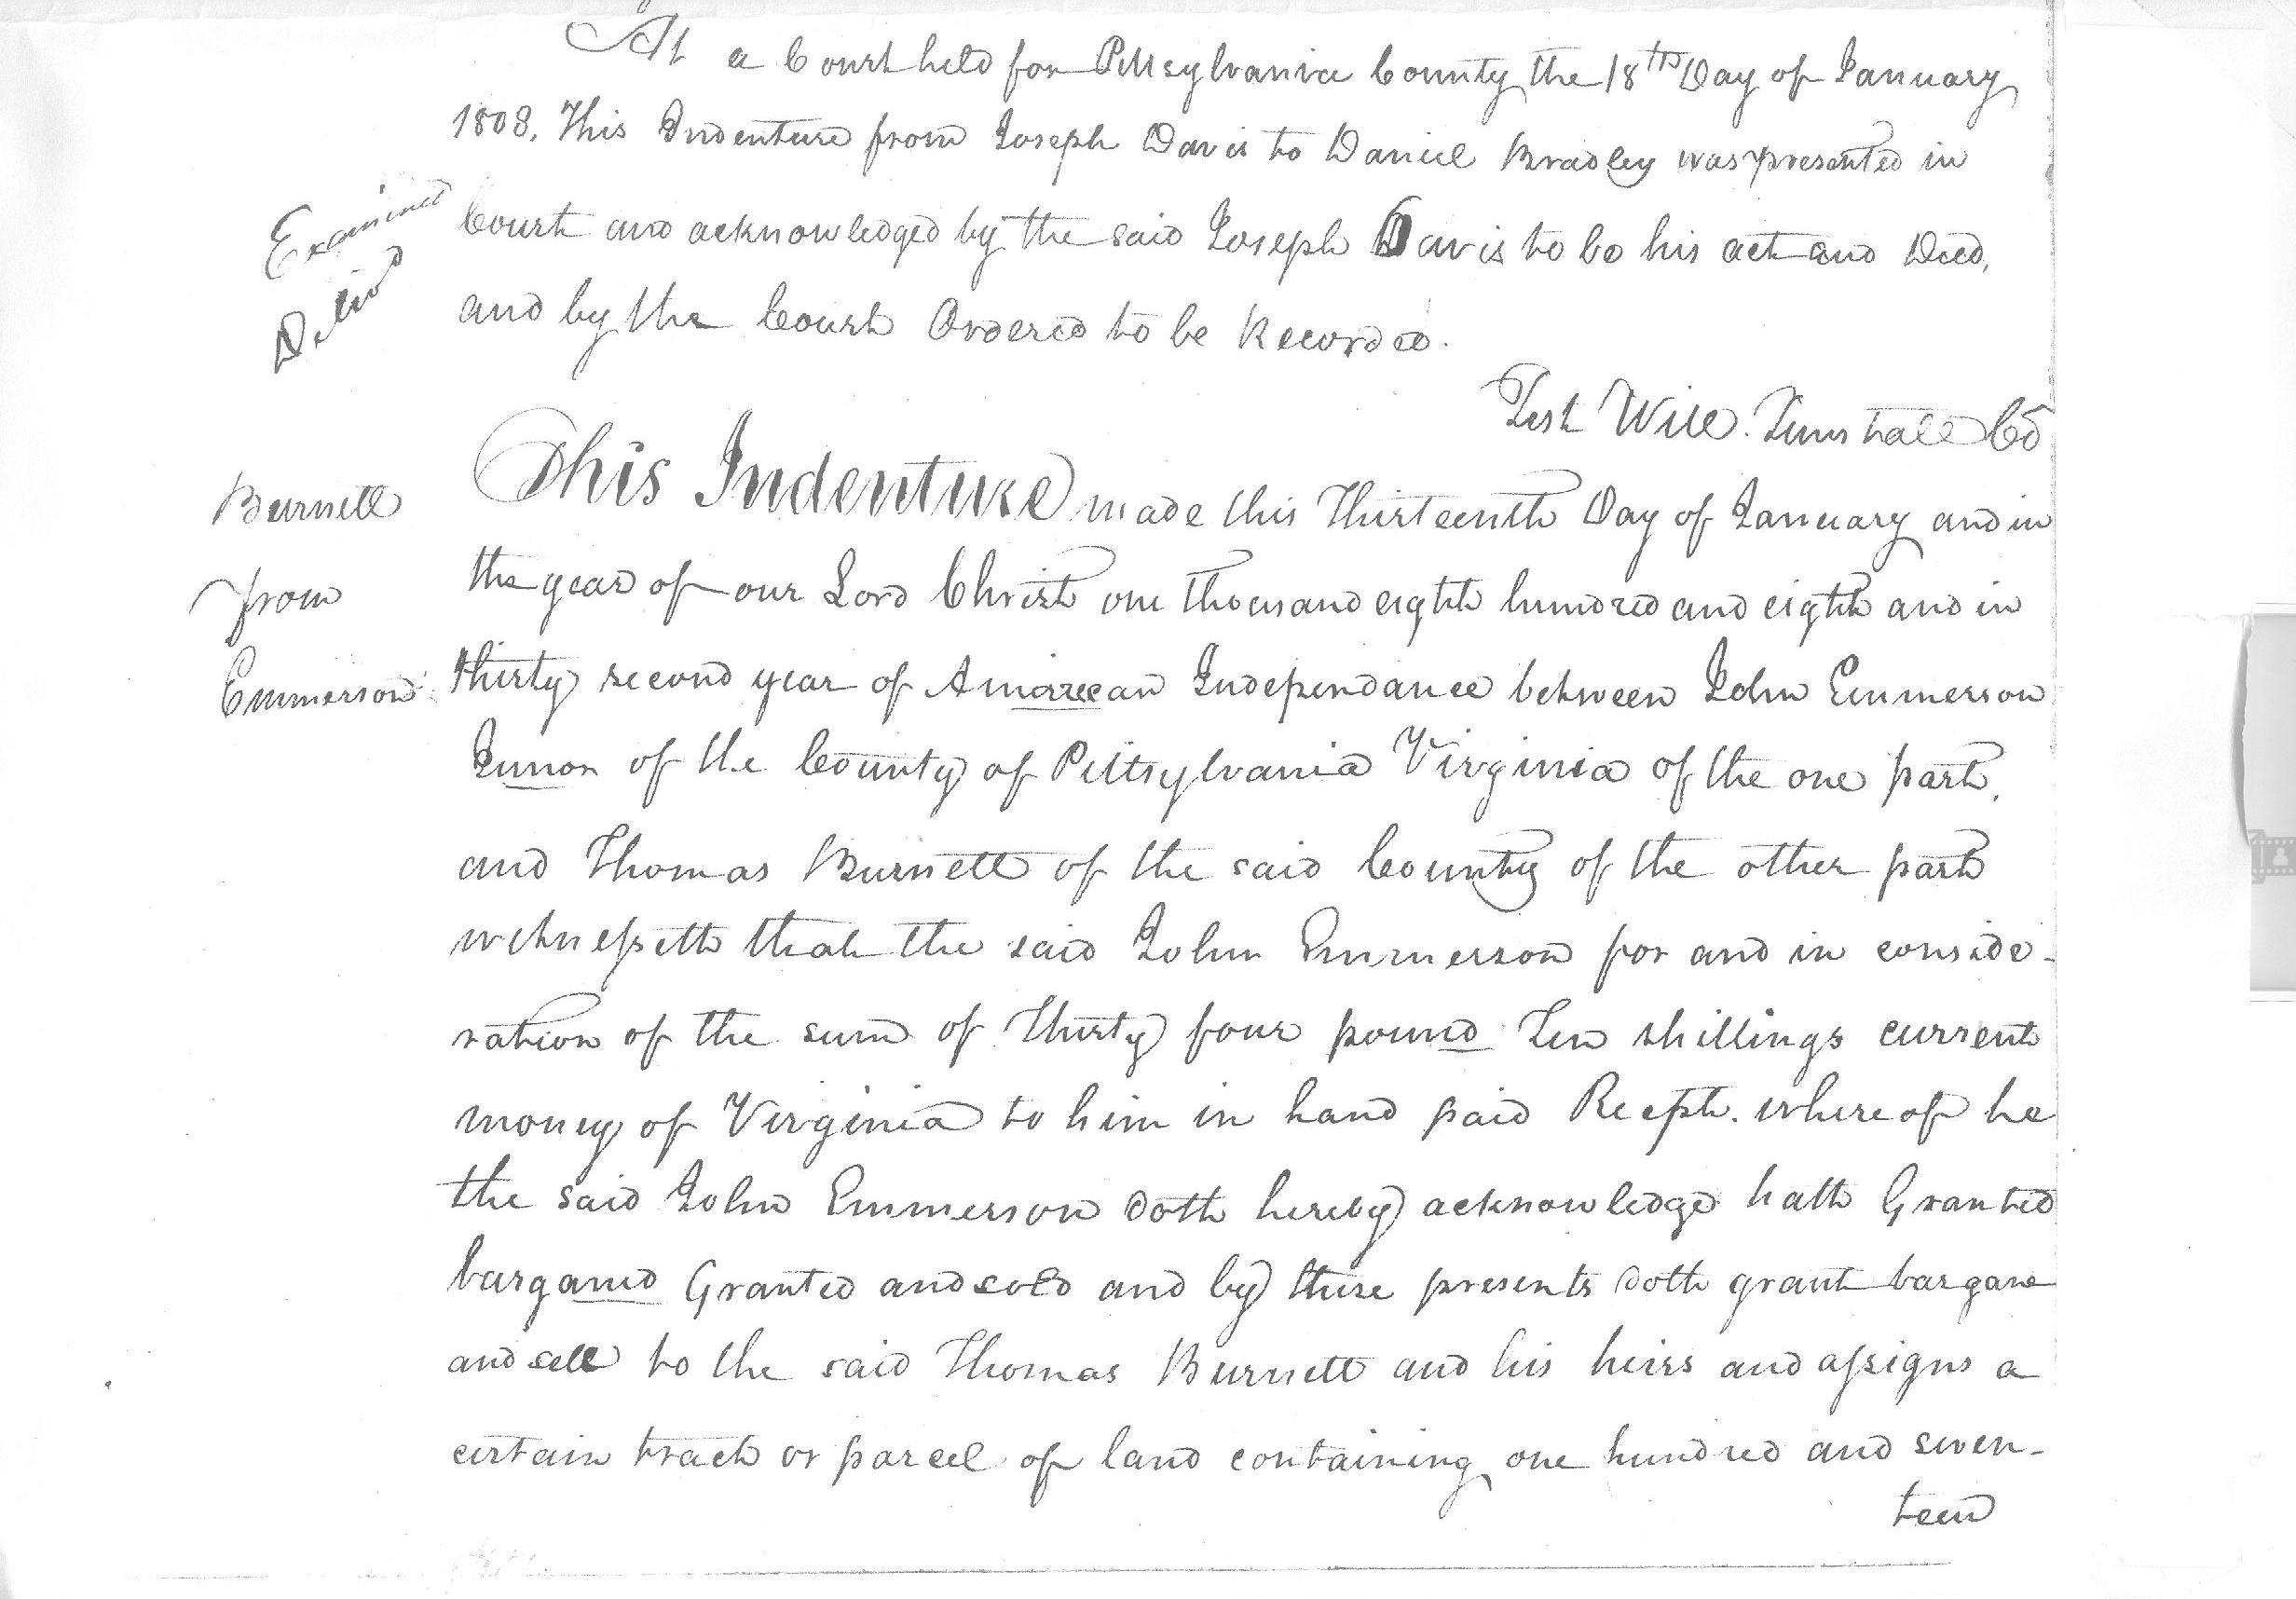 At a Court held for Pittsylvania County the 18th Day of January
1808. This Indenture from Joseph Davis to Daniel Bradley was presented in
Court and acknowledged by the said Joseph Davis to be his act and Deed,
and by the Court Ordered to be Recorded.
Examined
Deliv'd
Test Will. Tunstall CC
Burnett
from
Emmerson
This Indenture made this Thirteenth Day of January and in
the year of our Lord Christ one thousand eight hundred and eight and in
thirty second year of Amirecan Independance between John Emmerson
Junor of the County of Pittsylvania Virginia of the one part,
and Thomas Burnett of the said County of the other part
witnesseth that the said John Emmerson for and in conside-
ration of the sum of Thirty four pound Ten shillings current
money of Virginia to him in hand paid Recpt. whereof he
the said John Emmerson doth hereby acknowledge hath Granted
barganed Granted and sold and by these presents doth grant bargane
and sell to the said Thomas Burnett and his heirs and assigns a
certain track or parcel of land containing one hundred and seven-
teen